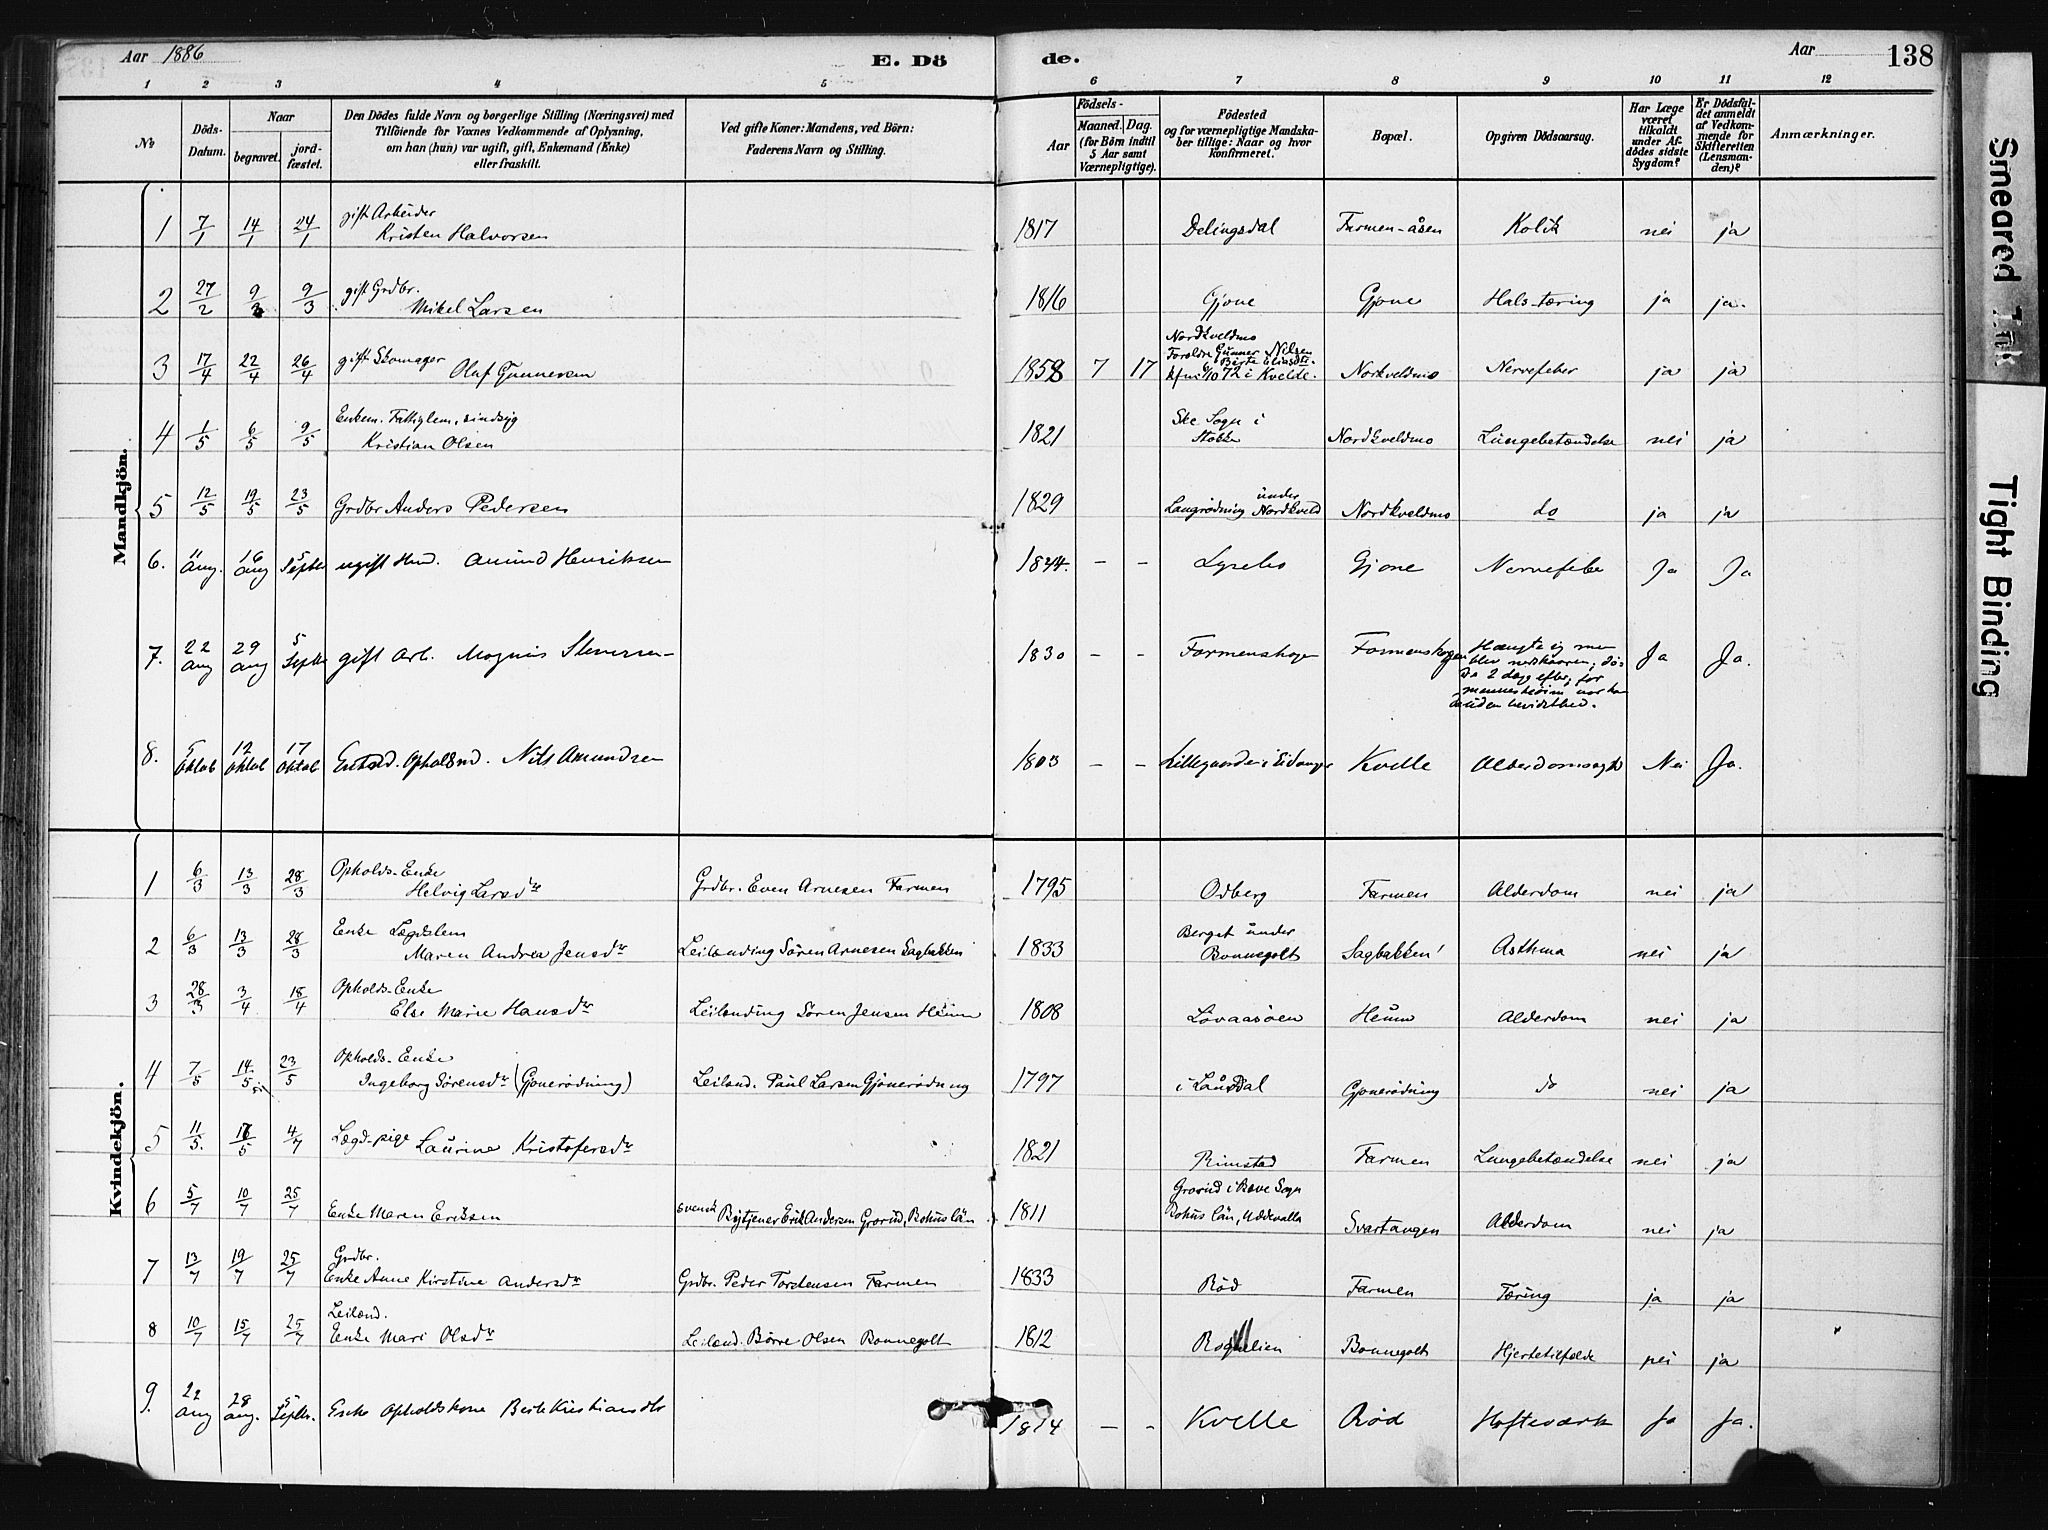 Aar 1886 E. Dö
de. Aar 138
1 2 3 4 5
6 7 8 9 10 11 12
No
Döds-Datum.
Naar
begravet.
jord-fæstet.
Den Dödes fulde Navn og borgerlige Stilling (Næringsvei) med
Tilföiende for Voxnes Vedkommende af Oplysning,
om han (hun) var ugift, gift, Enkemand (Enke)
eller fraskilt.
Ved gifte Koner: Mandens, ved Börn:
Faderens Navn og Stilling.
Födsels-
Aar
Maaned. Dag.
(for Børn indtil
5 Aar samt
Værnepligtige).
Födested
og for værnepligtige Mandska-
ber tillige: Naar og hvor
konfirmeret.
Bopæl.
Opgiven Dödsaarsag.
Har Læge
været
tilkaldt
under Af-
dödes sidste
Sygdom?
Er Dödsfal-
det anmeldt
af Vedkom-
mende for
Skifteretten
(Lensman-
den)?
Anmærkninger.
Mandkjön.
1 7/1 14/1 24/1 gift Arbeider
Kristen Halvorsen 1817 Delingsdal Farmen-åsen Kolik nei ja
2 27/2 9/3 9/3 gift Grdbr.
Mikel Larsen 1816 Gjone Gjone Hals-tæring ja ja.
3 17/4 22/4 26/4 gift Skomager
Oluf Gunnersen 1858 7 17 Nordkveldmo
Foreldre Gunner Nilsen
Kfm. 6/10 72 i Kvelde. Norkveldmo Nervefeber ja ja
4 1/5 6/5 9/5 Enkem. Fattiglem, sindsyg
Kristian Olsen 1821 Ske Sogn i
Stokke Nordkveldmo Lungebetændelse nei ja
5 12/5 19/5 23/5 Grdbr Anders Pedersen 1829 Langrødning under Nordkveld Nordkveldmo do ja ja
6. 11 Aug. 16 Aug 5 Septbr ugift Amund Henriksen 1844. - - Lysebo Gjone Nervefeber Ja Ja
7. 22 Aug 29 Aug 5 Septbr gift Arb. Magnus Steversen 1830 - - Farmenskogen Farmenskogen Hængte sig men
blev nedskaaren; dø-
de 2 dage efter; for
menneskeøine var han
uden bevidsthed. Ja Ja.
8. 5 Oktob 12 Oktob 17 Oktob Enkmd. Opholdsmd. Nils Amundsen 1803 - - Lillegaarden i Eidanger Kvelle Alderdomssvaghd Nei Ja.
Kvindekjön.
1 6/3 13/3 28/3 Opholds-Enke
Helvig Larsdtr Grdbr. Even Arnesen Farmen 1795 Odberg Farmen Alderdom nei ja
2 6/3 13/3 28/3 Enke Lægdslem
Maren Andrea Jensdtr Leilending Søren Arnesen Sagbakken 1833 Berget under
Bonnegolt Sagbakken Asthma nei ja
3 28/3 3/4 18/4 Opholds-Enke
Else Marie Hansdtr Leilending Søren Jensen Heum 1808 Løvaasøen Heum Alderdom nei ja
4 7/5 14/5 23/5 Opholds-Enke
Ingeborg Sørensdtr (Gjonerødning) Leilend. Paul Larsen Gjonerødning 1797 i Laurdal Gjonerødning do nei ja
5 11/5. 16/5 4/7 Lægd-pige Laurine Kristofersdtr 1821 Rimstad Farmen Lungebetændelse nei ja
6 5/7 10/7 25/7 Enke Maren Eriksen svensk Bytjener Erik Andersen Grorud, Bohus län 1811 Grorud i Bave Sogn
Bohus län, Uddevalla Svartangen Alderdom nei ja
7 13/7 19/7 25/7 Grdbr.
Enke Anne Kirstine Andersdtr Grdbr. Peder Torstensen Farmen 1833 Rød Farmen Tæring ja ja
8 10/7 15/7 25/7 Leilænd.
Enke Mari Olsdtr Leilænd. Børre Olsen Bonnegolt 1812 Rognlien Bonnegolt Hjertetilfælde nei ja
9. 22 Aug 28 Aug. 5 Septbr. Enke Opholdskone Berte Kristiansdtr 1814 - - Kvelle Rød Hofteværk Ja Ja.
Smeared Ink
Tight Binding